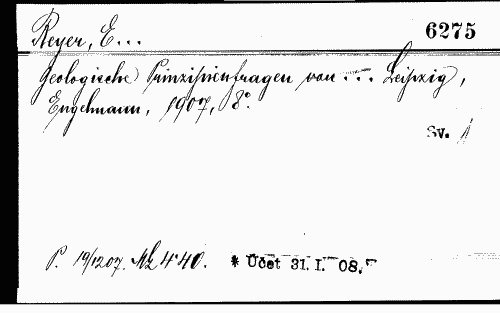 Reyer, E... 6275
Geologische Prinzipienfragen von ... Leipzig,
Engelmann, 1907, 8°.
Sv. 1
P. 19/1207. Mk 4·40. * Účet 31. I. 08.